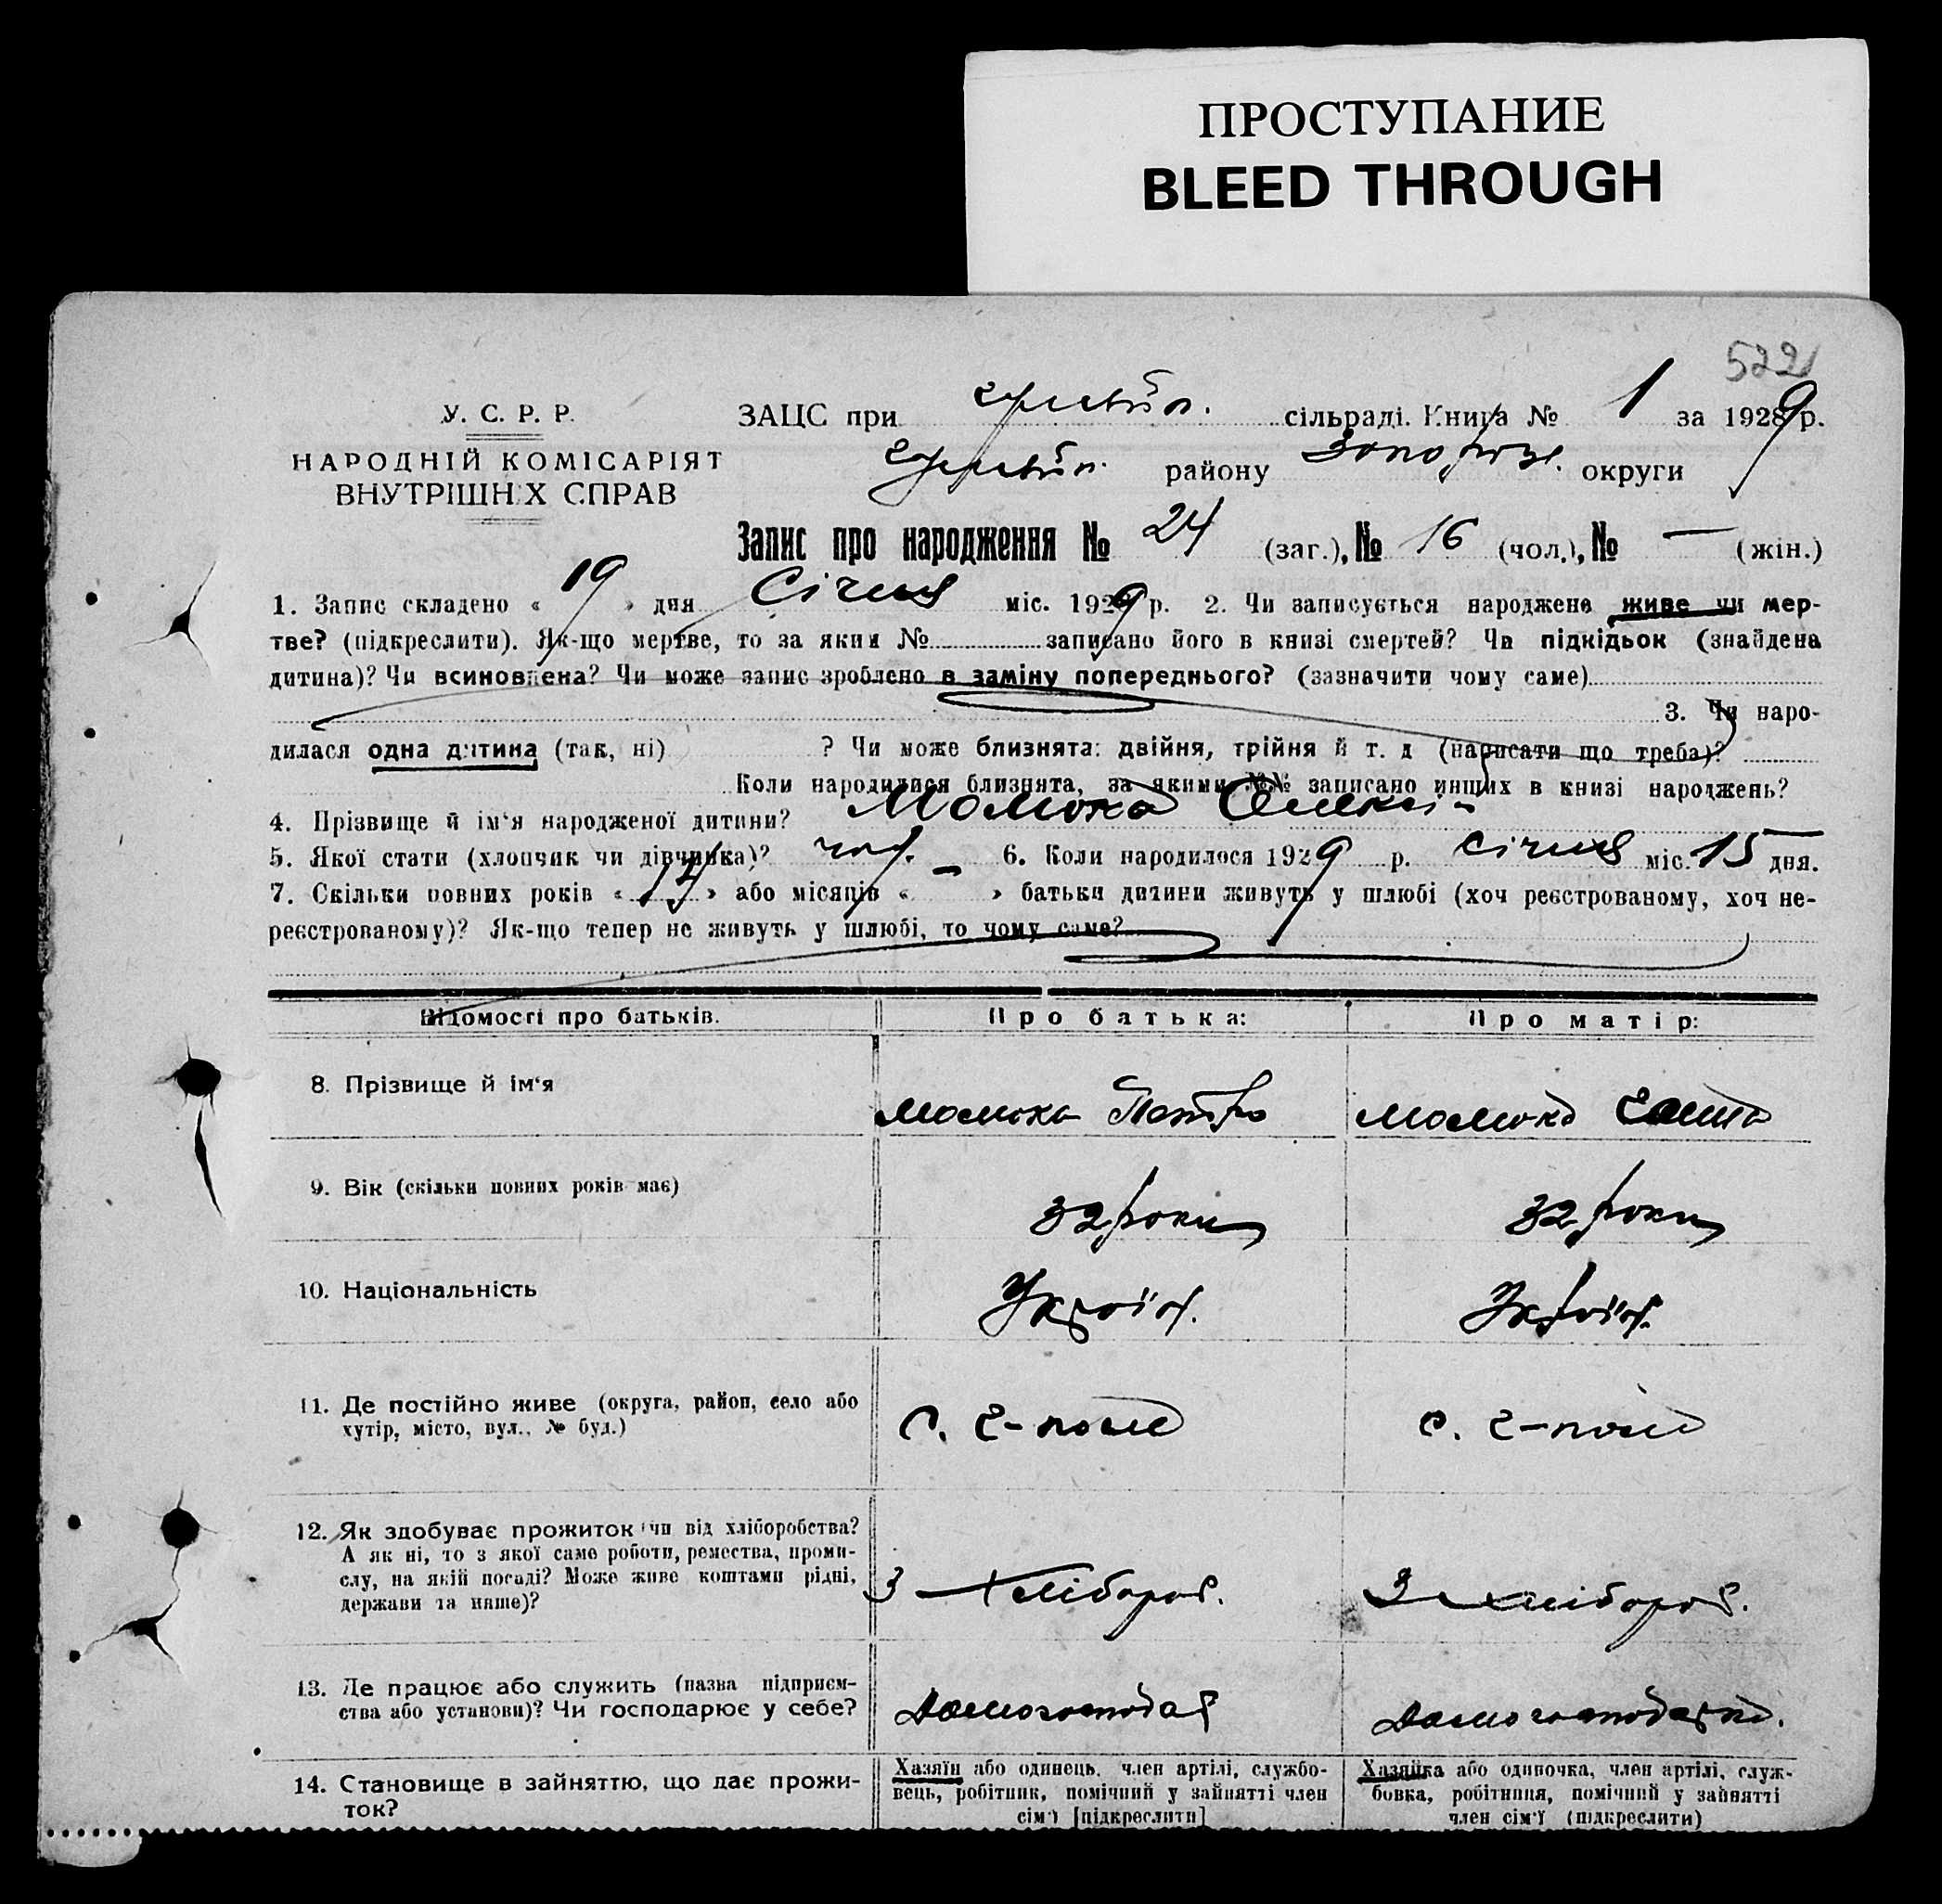 ПРОСТУПАНИЕ
BLEED THROUGH
522
У. С. Р. Р.
НАРОДНІЙ КОМІСАРІЯТ
ВНУТРІШНІХ СПРАВ
ЗАЦС при сільраді. Книга № 1 за 1929 р.
району Запоріз. округи
Запис про народження № 24 (заг.), № 16 (чол.), № — (жін.)
1. Запис складено « 19 » дня Січня міс. 1929 р. 2. Чи записується народжене живе чи мер-
тве? (підкреслити). Як-що мертве, то за яким № записано його в книзі смертей? Чи підкідьок (знайдена
дитина)? Чи всиновлена? Чи може запис зроблено в заміну попереднього? (зазначити чому саме)
3. Чи наро-
дилася одна дитина (так, ні) ? Чи може близнята: двійня, трійня й т. д (написати що треба)?
Коли народилися близнята, за якими №№ записано инших в книзі народжень?
4. Прізвище й ім‘я народженої дитини? Малюка Олексій
5. Якої стати (хлопчик чи дівчинка)? чол. — 6. Коли народилося 1929 р. Січня міс. 15 дня.
7. Скільки повних років « 14 » або місяців « » батьки дитини живуть у шлюбі (хоч реєстрованому, хоч не-
реєстрованому)? Як-що тепер не живуть у шлюбі, то чому саме?
Відомості про батьків. Про батька: Про матір:
8. Прізвище й ім‘я Малюка Петро Малюка
9. Вік (скільки повних років має) 32 роки 32 роки
10. Національність Україн. Україн.
11. Де постійно живе (округа, район, село або
хутір, місто, вул., № буд.) с. Г-поле с. Г-поле
12. Як здобуває прожиток (чи від хліборобства?
А як ні, то з якої саме роботи, ремества, проми-
слу, на якій посаді? Може живе коштами рідні,
держави та инше)? З хлібороб. З хлібороб.
13. Де працює або служить (назва підприєм-
ства або установи)? Чи господарює у себе? Домогосподар Домогосподарка.
14. Становище в зайняттю, що дає прожи-
ток?
Хазяїн або одинець, член артілі, службо-
вець, робітник, помічний у зайнятті член
сім‘ї [підкреслити]
Хазяйка або одиночка, член артілі, служ-
бовка, робітниця, помічний у зайнятті
член сім‘ї (підкреслити)